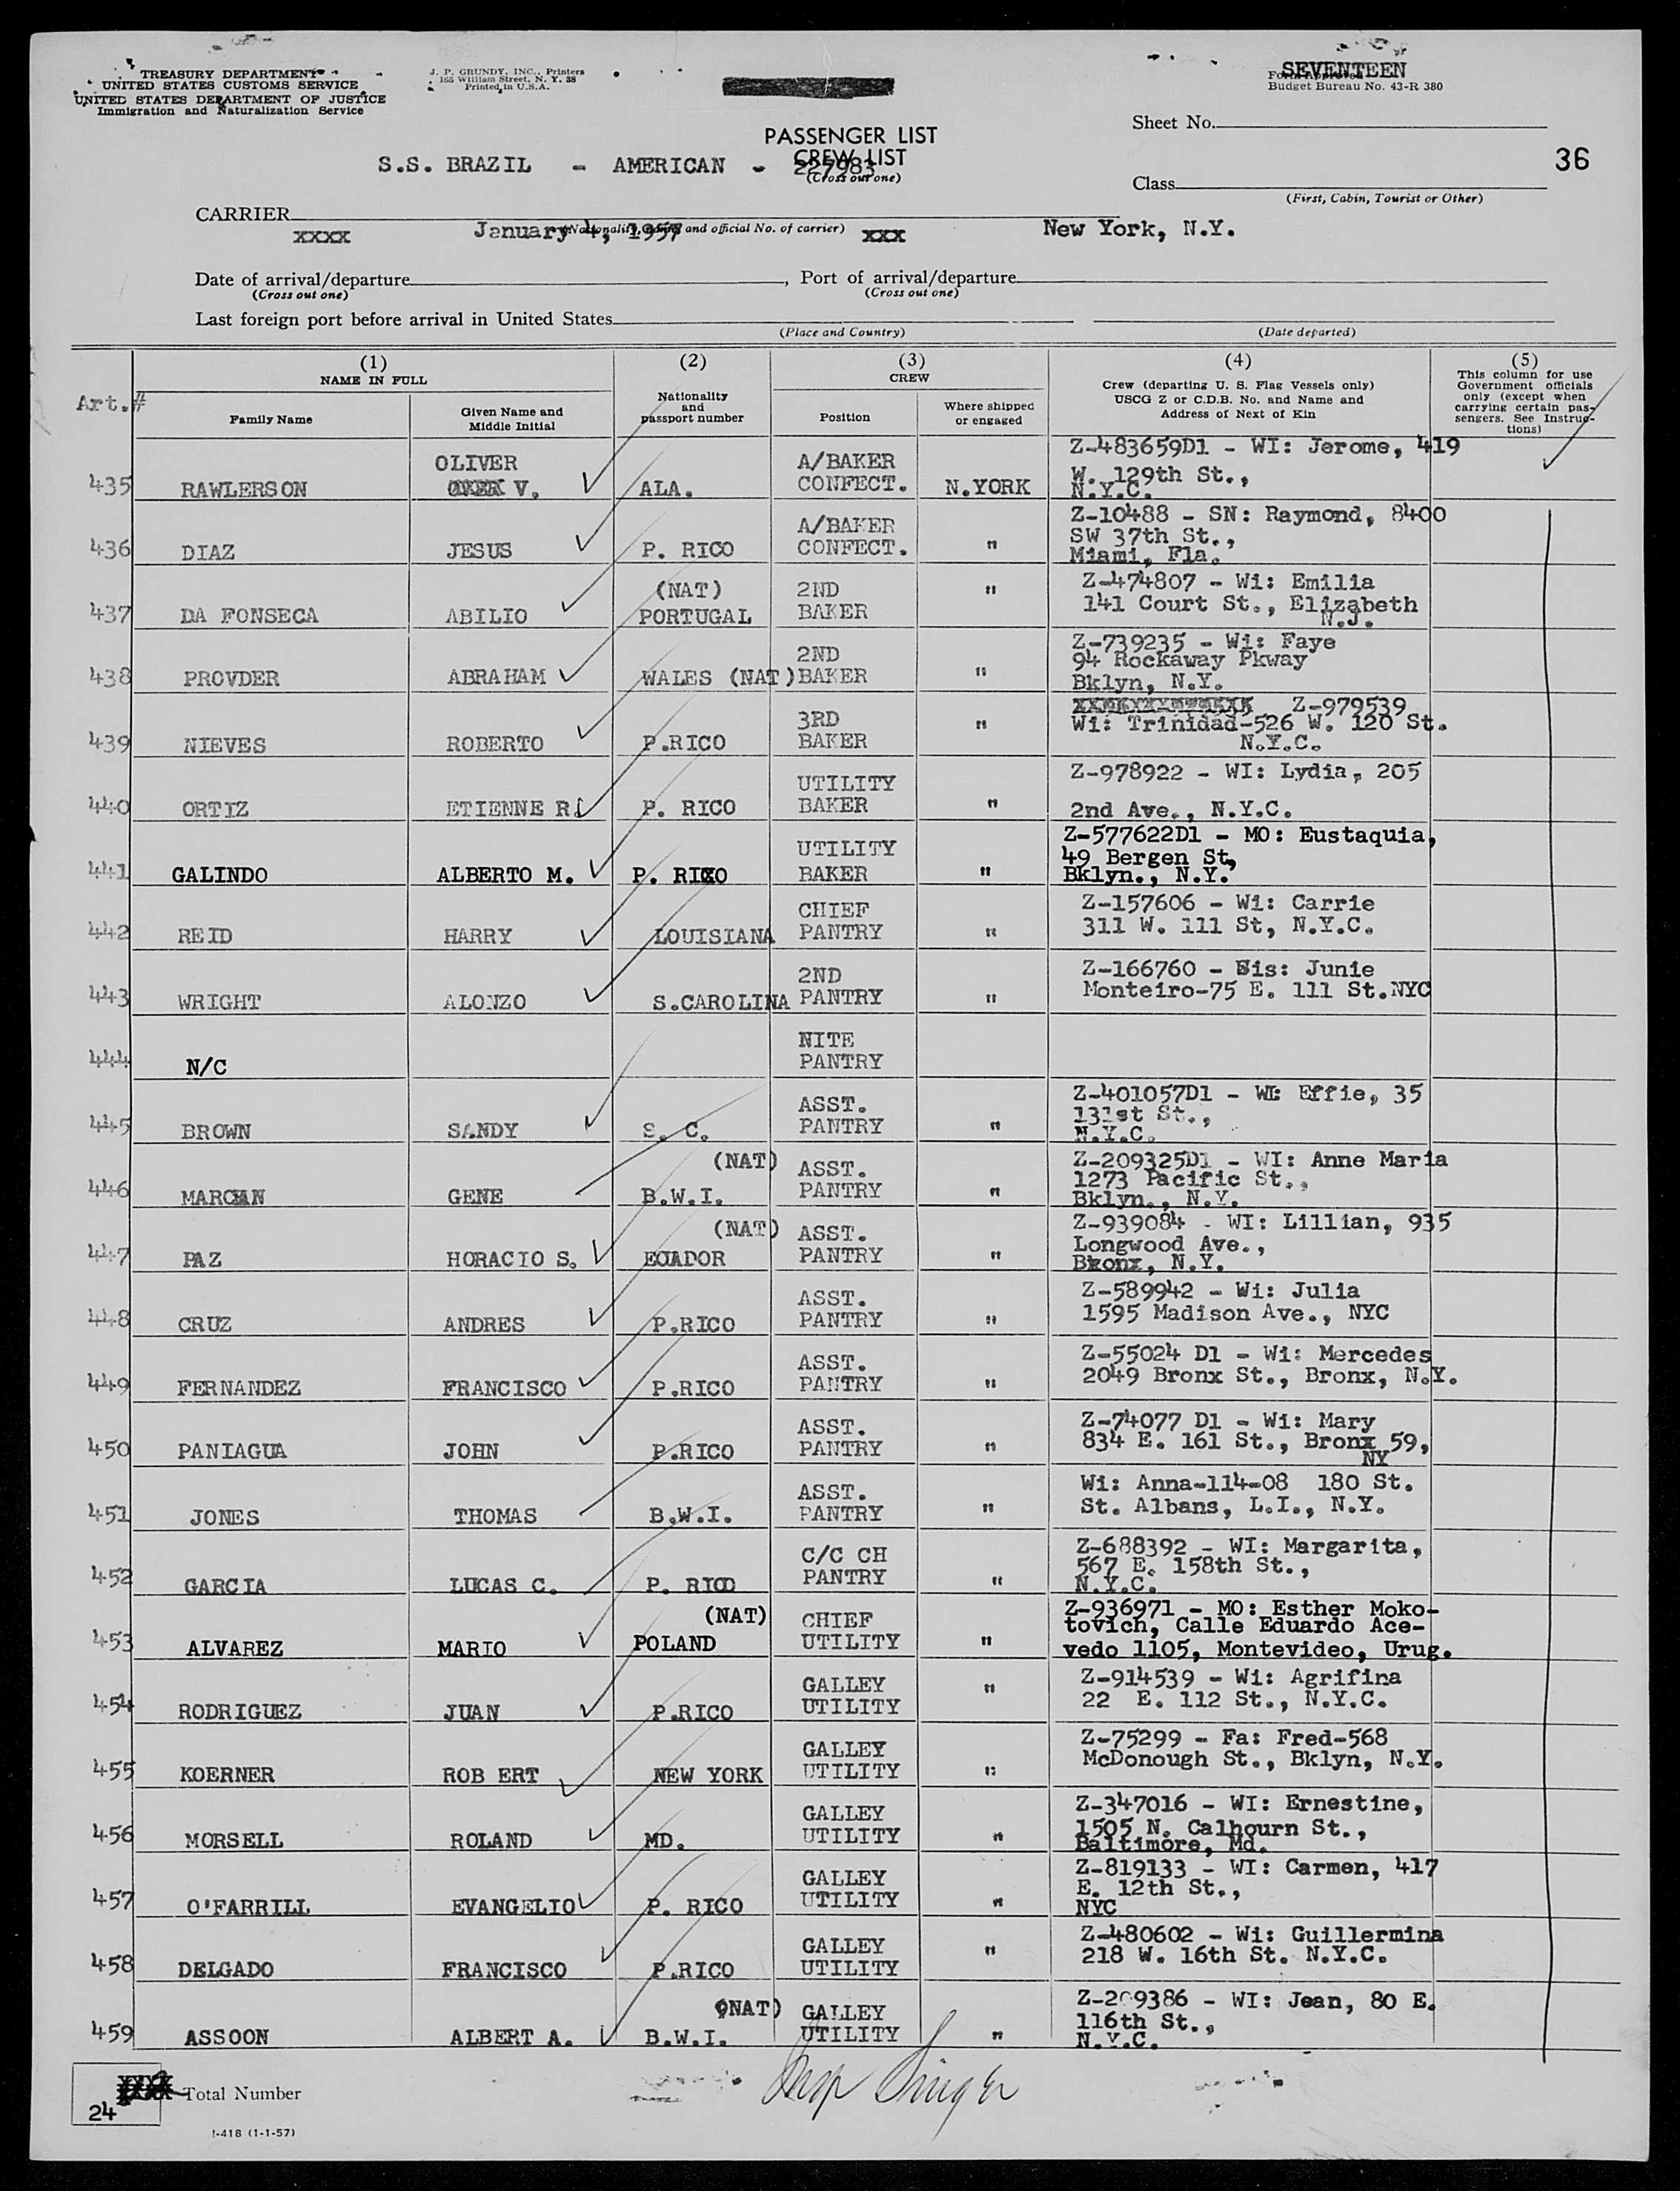 TREASURY DEPARTMENT
UNITED STATES CUSTOMS SERVICE
UNITED STATES DEPARTMENT OF JUSTICE
Immigration and Naturalization Service
J. P. GRUNDY, INC., Printers
165 William Street, N. Y. 38
Printed in U.S.A.
SEVENTEEN
Form Approved
Budget Bureau No. 43-R 380
Sheet No.
PASSENGER LIST
CREW LIST
(Cross out one)
S.S. BRAZIL - AMERICAN - 227983
36
Class
(First, Cabin, Tourist or Other)
CARRIER
(Nationality, name and official No. of carrier)
XXXX January 4, 1957 XXX New York, N.Y.
Date of arrival/departure , Port of arrival/departure
(Cross out one) (Cross out one)
Last foreign port before arrival in United States
(Place and Country) (Date departed)
(1) (2) (3) (4) (5)
NAME IN FULL
Nationality and passport number
CREW
Crew (departing U. S. Flag Vessels only)
USCG Z or C.D.B. No. and Name and
Address of Next of Kin
This column for use
Government officials
only (except when
carrying certain pas-
sengers. See Instruc-
tions)
Art.#
Family Name
Given Name and Middle Initial
Position
Where shipped or engaged
435 RAWLERSON OLIVER V. ALA. A/BAKER CONFECT. N.YORK Z-483659D1 - WI: Jerome, 419
W. 129th St.,
N.Y.C.
436 DIAZ JESUS P. RICO A/BAKER CONFECT. " Z-10488 - SN: Raymond, 8400
SW 37th St.,
Miami, Fla.
437 DA FONSECA ABILIO (NAT) PORTUGAL 2ND BAKER " Z-474807 - Wi: Emilia
141 Court St., Elizabeth
N.J.
438 PROVDER ABRAHAM WALES (NAT) 2ND BAKER " Z-739235 - Wi: Faye
94 Rockaway Pkway
Bklyn, N.Y.
439 NIEVES ROBERTO P.RICO 3RD BAKER " Z-979539
Wi: Trinidad-526 W. 120 St.
N.Y.C.
440 ORTIZ ETIENNE R. P. RICO UTILITY BAKER " Z-978922 - WI: Lydia, 205
2nd Ave., N.Y.C.
441 GALINDO ALBERTO M. P. RICO UTILITY BAKER " Z-577622D1 - MO: Eustaquia,
49 Bergen St,
Bklyn., N.Y.
442 REID HARRY LOUISIANA CHIEF PANTRY " Z-157606 - Wi: Carrie
311 W. 111 St, N.Y.C.
443 WRIGHT ALONZO S.CAROLINA 2ND PANTRY " Z-166760 - Sis: Junie
Monteiro-75 E. 111 St.NYC
444 N/C NITE PANTRY
445 BROWN SANDY S. C. ASST. PANTRY " Z-401057D1 - WI: Effie, 35
131st St.,
N.Y.C.
446 GENE (NAT) B.W.I. ASST. PANTRY " Z-209325D1 - WI: Anne Maria
1273 Pacific St.,
Bklyn., N.Y.
447 PAZ HORACIO S. (NAT) ECUADOR ASST. PANTRY " Z-939084 - WI: Lillian, 935
Longwood Ave.,
Bronx, N.Y.
448 CRUZ ANDRES P.RICO ASST. PANTRY " Z-589942 - Wi: Julia
1595 Madison Ave., NYC
449 FERNANDEZ FRANCISCO P.RICO ASST. PANTRY " Z-55024 D1 - Wi: Mercedes
2049 Bronx St., Bronx, N.Y.
450 PANIAGUA JOHN P.RICO ASST. PANTRY " Z-74077 D1 - Wi: Mary
834 E. 161 St., Bronx 59,
NY
451 JONES THOMAS B.W.I. ASST. PANTRY " Wi: Anna-114-08 180 St.
St. Albans, L.I., N.Y.
452 GARCIA LUCAS C. P. RICO C/C CH PANTRY " Z-688392 - WI: Margarita,
567 E. 158th St.,
N.Y.C.
453 ALVAREZ MARIO (NAT) POLAND CHIEF UTILITY " Z-936971 - MO: Esther Moko-
tovich, Calle Eduardo Ace-
vedo 1105, Montevideo, Urug.
454 RODRIGUEZ JUAN P.RICO GALLEY UTILITY " Z-914539 - Wi: Agrifina
22 E. 112 St., N.Y.C.
455 KOERNER ROB ERT NEW YORK GALLEY UTILITY " Z-75299 - Fa: Fred-568
McDonough St., Bklyn, N.Y.
456 MORSELL ROLAND MD. GALLEY UTILITY " Z-347016 - WI: Ernestine,
1505 N. Calhourn St.,
Baltimore, Md.
457 O'FARRILL EVANGELIO P. RICO GALLEY UTILITY " Z-819133 - WI: Carmen, 417
E. 12th St.,
NYC
458 DELGADO FRANCISCO P.RICO GALLEY UTILITY " Z-480602 - Wi: Guillermina
218 W. 16th St. N.Y.C.
459 ASSOON ALBERT A. (NAT) B.W.I. GALLEY UTILITY " Z-209386 - WI: Jean, 80 E.
116th St.,
N.Y.C.
24 Total Number
Insp Singer
I-418 (1-1-57)